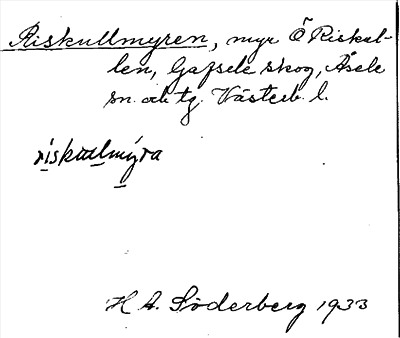 Riskullmyren, myr Ö Riskul-
len, Gafsele skog, Åsele
sn. och tg. Västerb. l.
riskullmýra
H A. Söderberg 1933